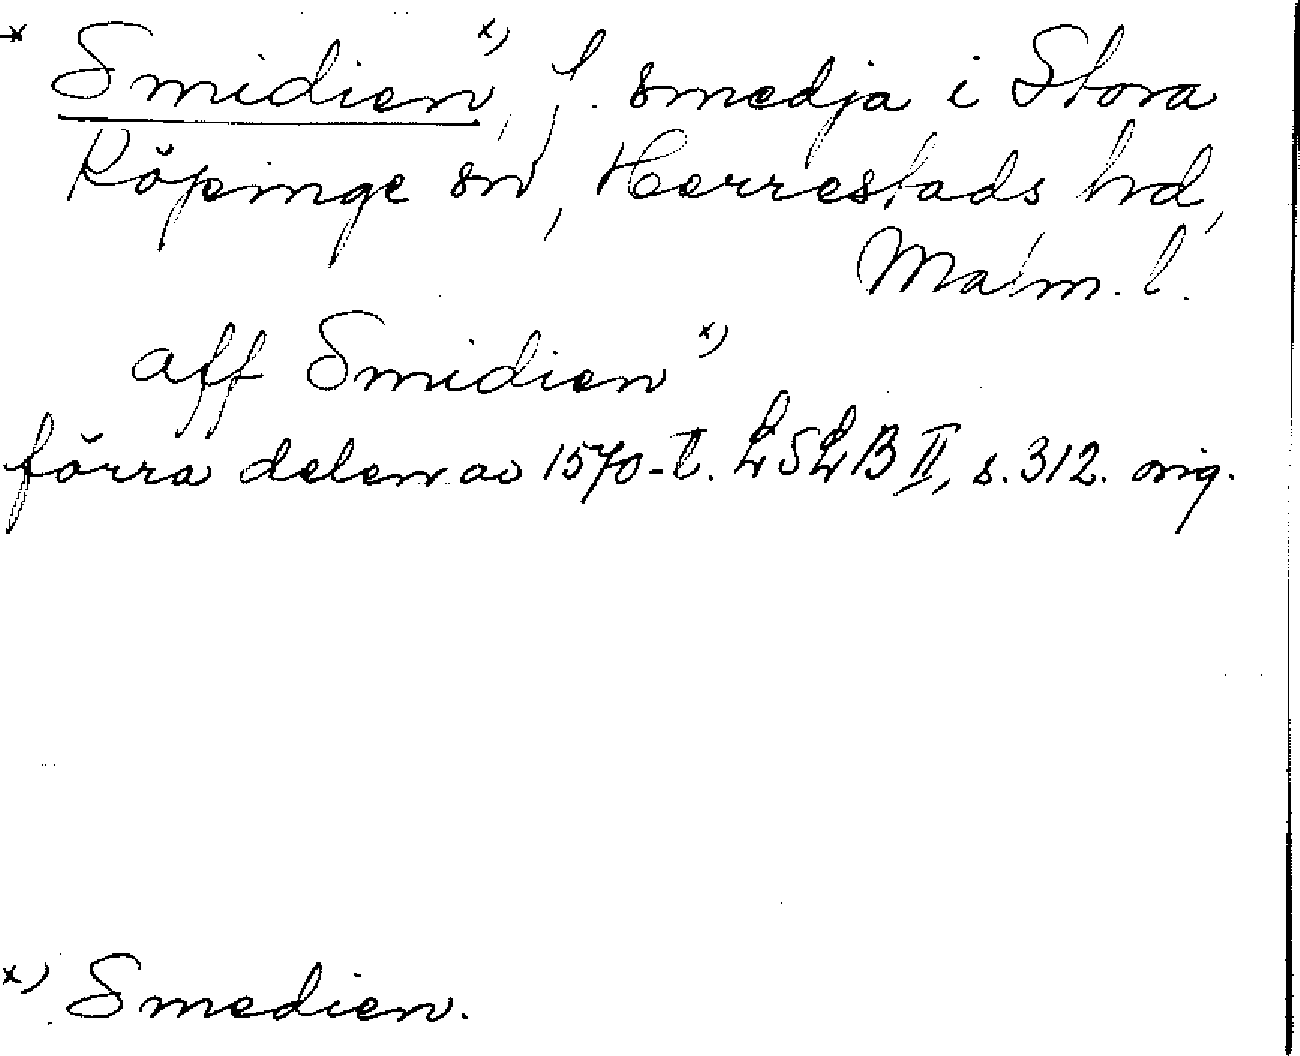 * Smidien x), f. smedja i Stora
Köpinge sn, Herrestads hd,
Malm. l.
aff Smidien x)
förra delen av 1570-t. LSLB II, s. 312. orig.
x) Smedien.